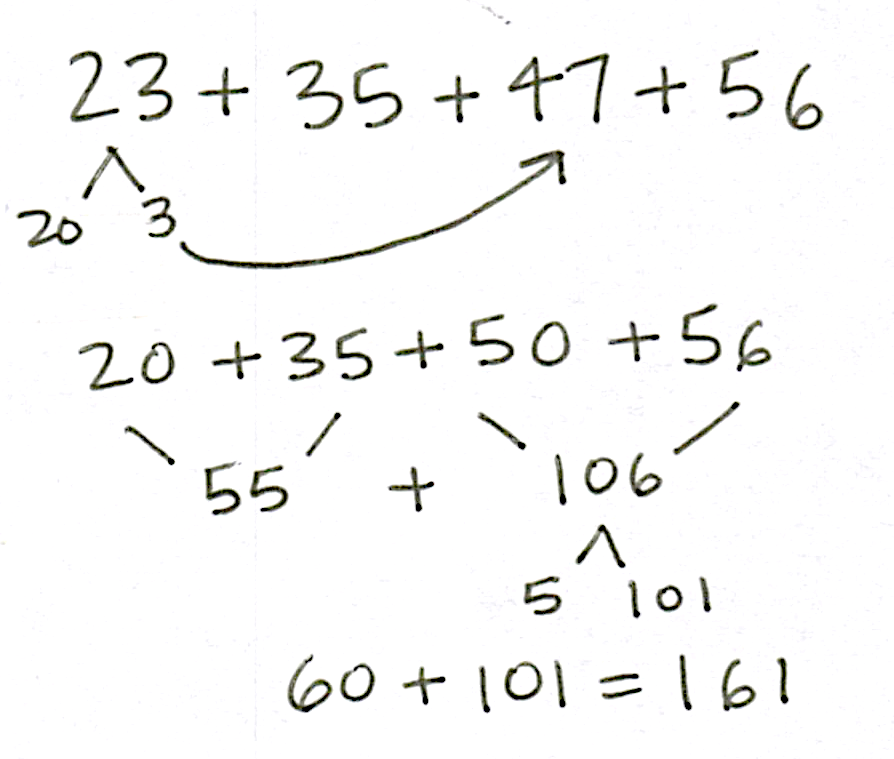 23 + 35 + 47 + 56
20 3
20 + 35 + 50 + 56
55 + 106
5 101
60 + 101 = 161